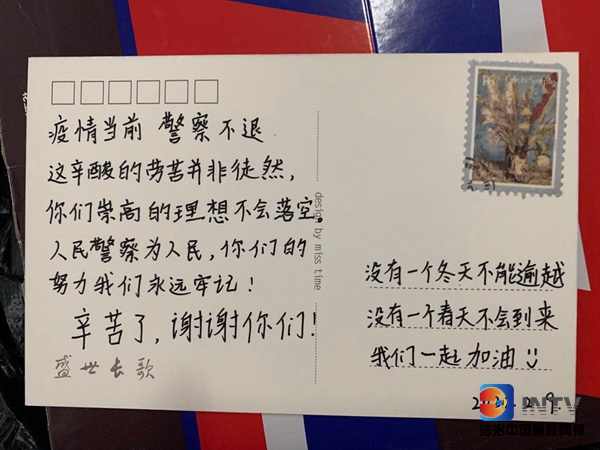 疫情当前 警察不退
这辛酸的劳苦并非徒然,
你们崇高的理想不会落空。
人民警察为人民,你们的
努力我们永远牢记!
辛苦了,谢谢你们!
盛世长歌
design by miss time
没有一个冬天不能逾越
没有一个春天不会到来
我们一起加油
INTV